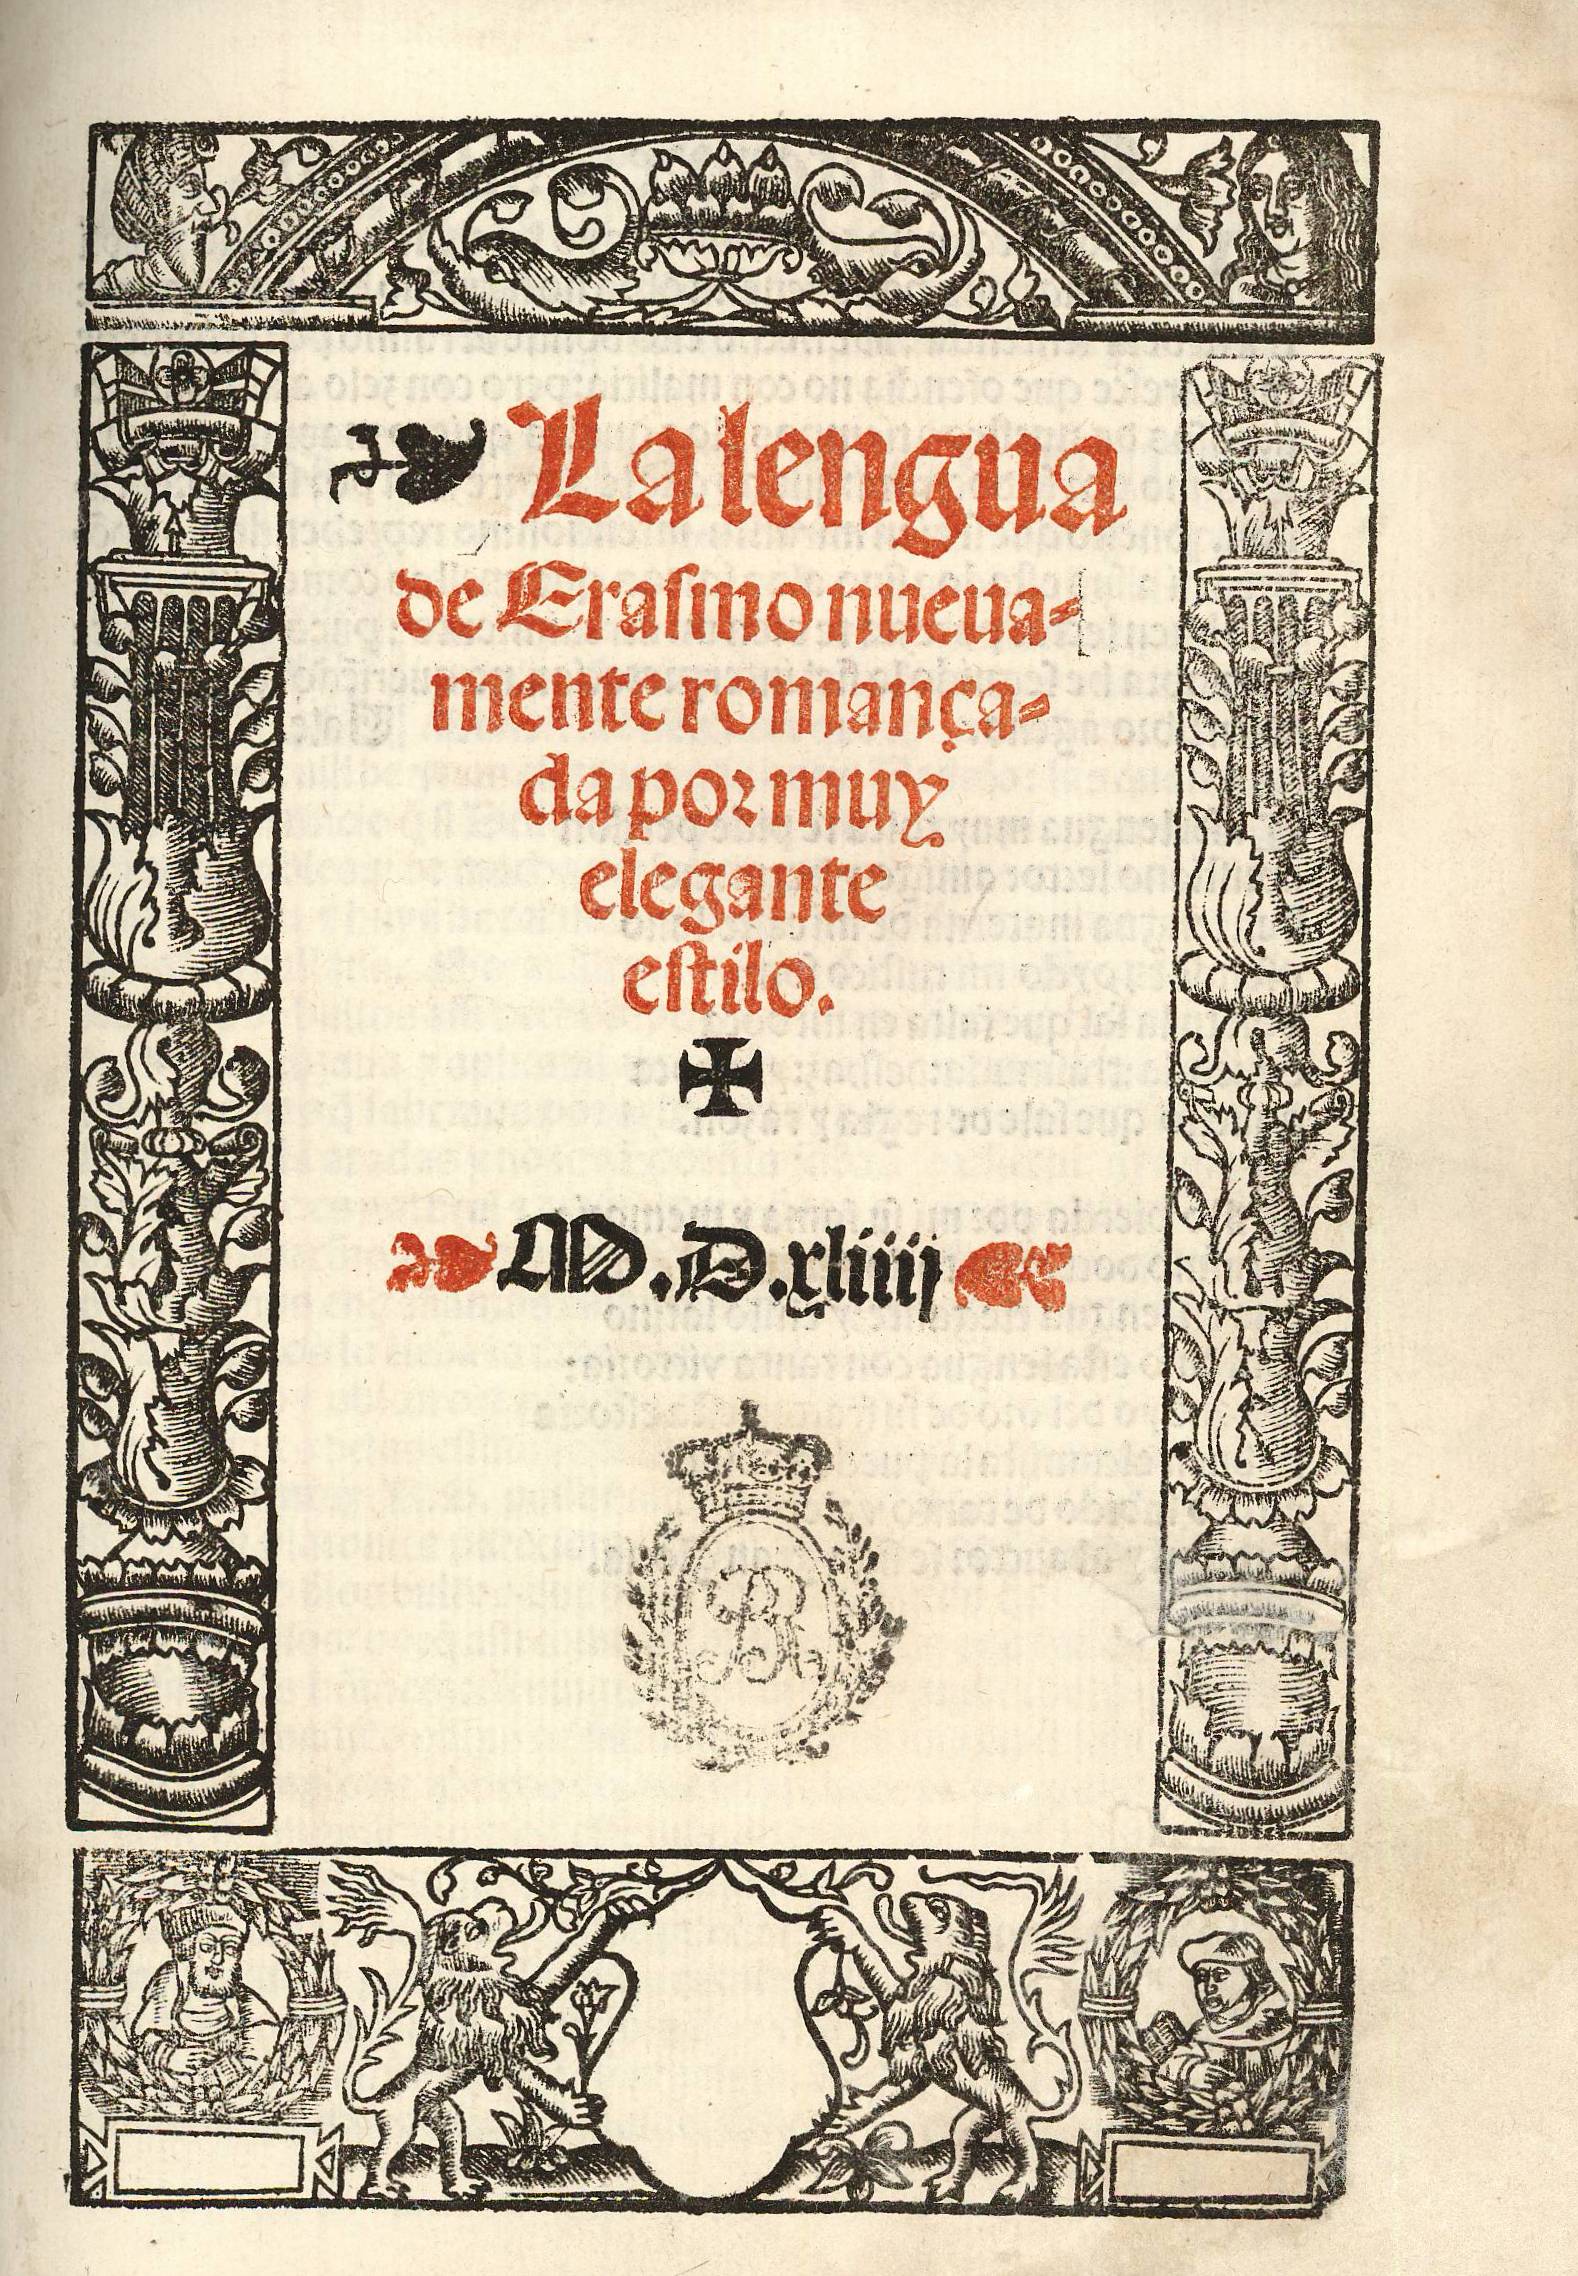 La lengua
de Erasmo nueua-
mente romança-
da por muy
elegante
estilo.
M.D.xliiij
BR